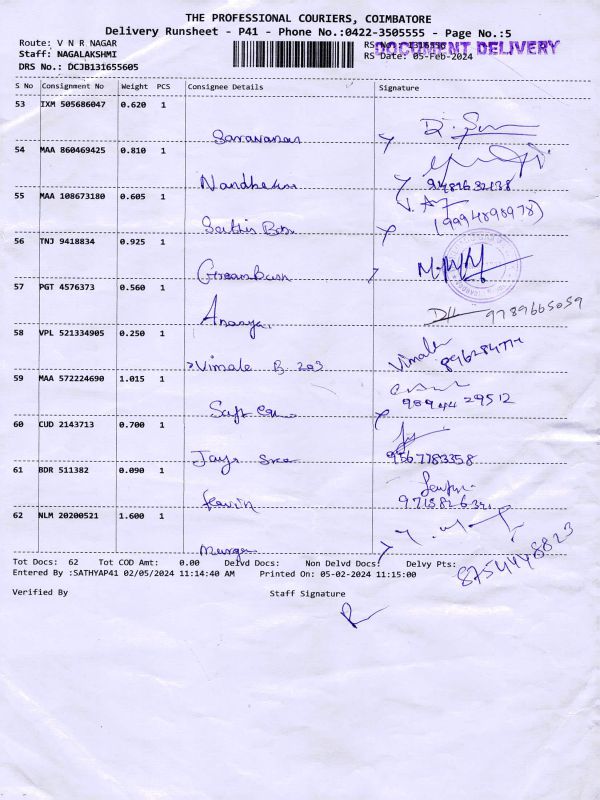 THE PROFESSIONAL COURIERS, COIMBATORE
Delivery Runsheet - P41 - Phone No.:0422-3505555 - Page No.:5
Route: V N R NAGAR
DOCUMENT DELIVERY
Staff: NAGALAKSHMI
RS Date: 05-Feb-2024
DRS No.: DCJB131655605
S No Consignment No Weight PCS Consignee Details Signature
53 IXM 505686047 0.620 1
Saravanan
54 MAA 860469425 0.810 1
55 MAA 108673180 0.605 1
(9994898978)
56 TNJ 9418834 0.925 1
57 PGT 4576373 0.560 1
Ananya
9789665059
58 VPL 521334905 0.250 1
Vimala
Vimale B 203
59 MAA 572224690 1.015 1
98944 29512
60 CUD 2143713 0.700 1
Jaya Sree
9567783358
61 BDR 511382 0.090 1
62 NLM 20200521 1.600 1
Murugan
8754448823
Tot Docs: 62 Tot COD Amt: 0.00 Delvd Docs: Non Delvd Docs: Delvy Pts:
Entered By :SATHYAP41 02/05/2024 11:14:40 AM Printed On: 05-02-2024 11:15:00
Verified By Staff Signature